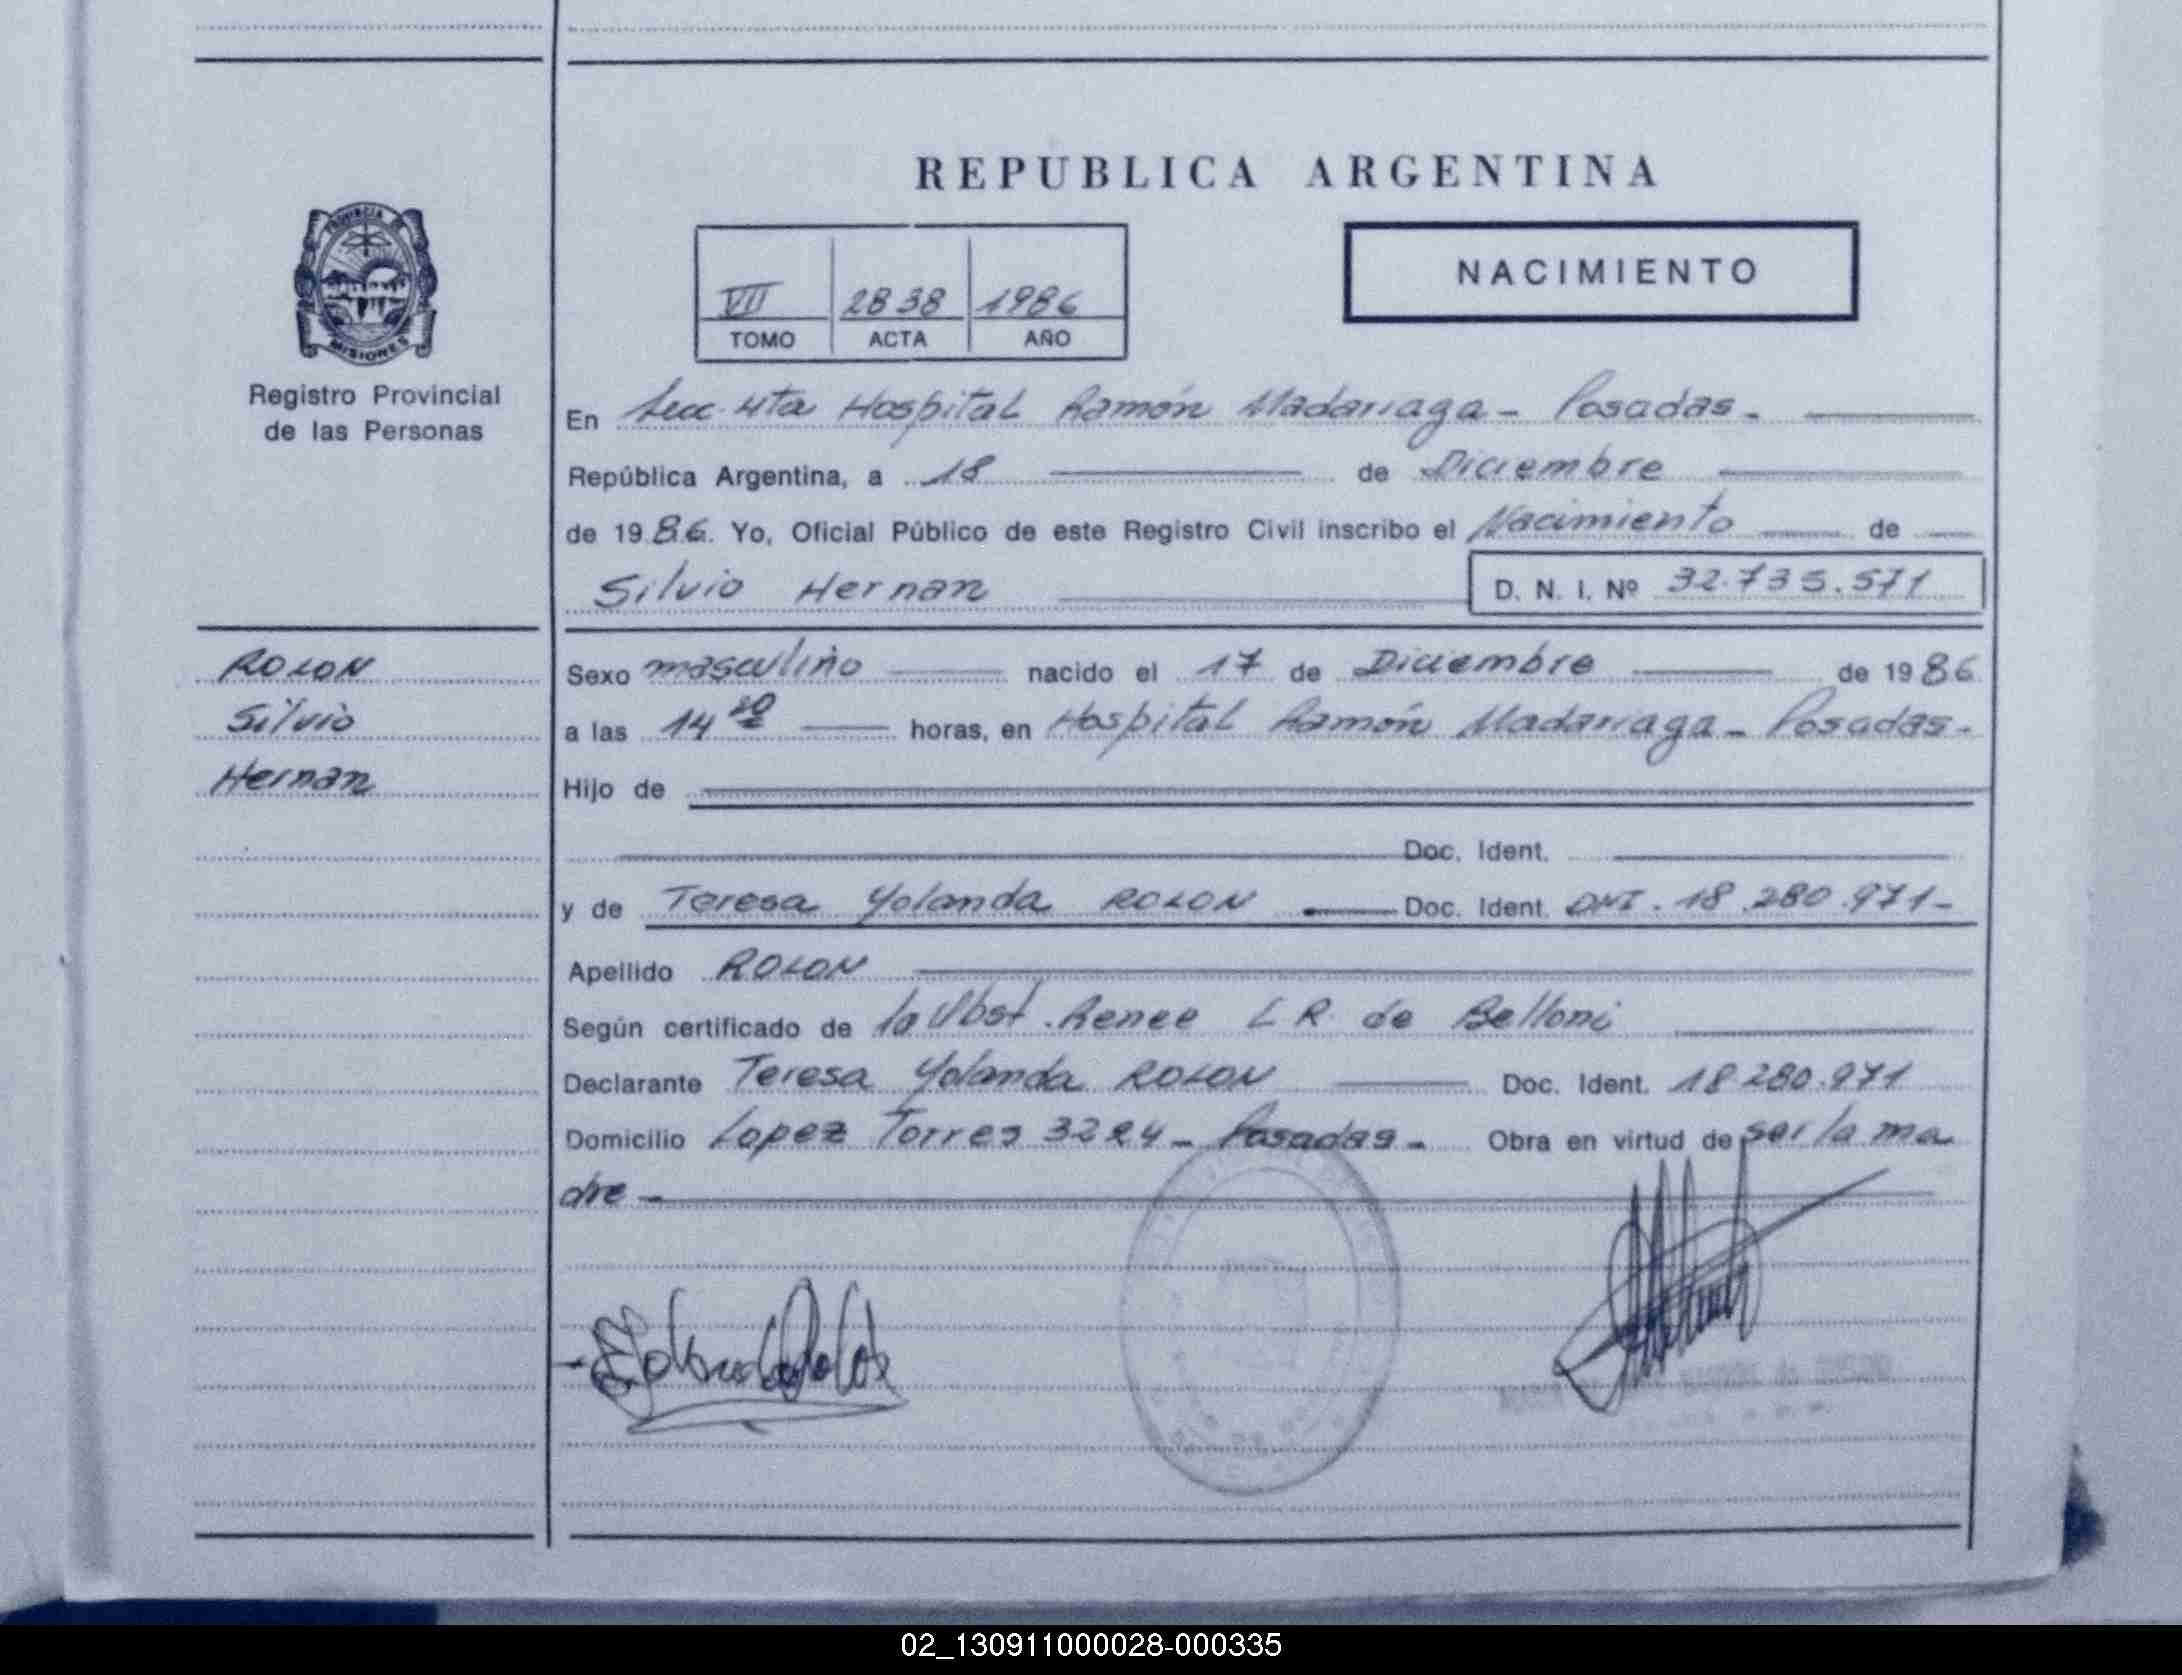 REPUBLICA ARGENTINA
PROVINCIA DE
MISIONES
Registro Provincial
de las Personas
NACIMIENTO
VII 2838 1986
TOMO ACTA AÑO
En Secc. 4ta Hospital Ramón Madariaga - Posadas -
República Argentina, a 18 de Diciembre
de 1986. Yo, Oficial Público de este Registro Civil inscribo el Nacimiento de
Silvio Hernan D. N. I. Nº 32.735.571
ROLON
Silvio
Hernan
Sexo masculino nacido el 17 de Diciembre de 1986
a las 14 20 horas, en Hospital Ramón Madariaga - Posadas -
Hijo de
Doc. Ident.
y de Teresa Yolanda ROLON Doc. Ident. DNI. 18.280.971-
Apellido ROLON
Según certificado de la Obst. Renee L R de Belloni
Declarante Teresa Yolanda ROLON Doc. Ident. 18 280.971
Domicilio Lopez Torres 3224 - Posadas - Obra en virtud de ser la ma
dre -
02_130911000028-000335